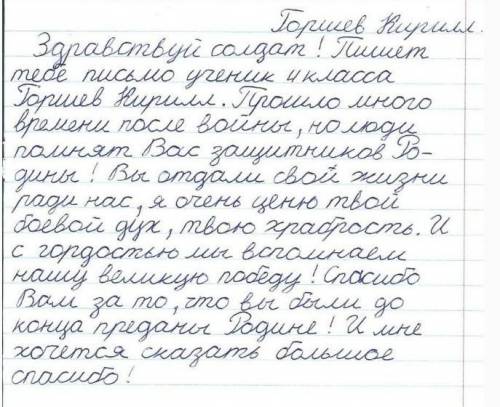 Горшев Кирилл.
Здравствуй солдат! Пишет
тебе письмо ученик 4 класса
Горшев Кирилл. Прошло много
времени после войны, но люди
помнят Вас защитников Ро-
дины! Вы отдали свой жизни
ради нас, я очень ценю твой
боевой дух, твою храбрость. И
с гордостью мы вспомнаем
нашу великую победу! Спасибо
Вам за то, что вы были до
конца преданы Родине! И мне
хочется сказать большое
спасибо!